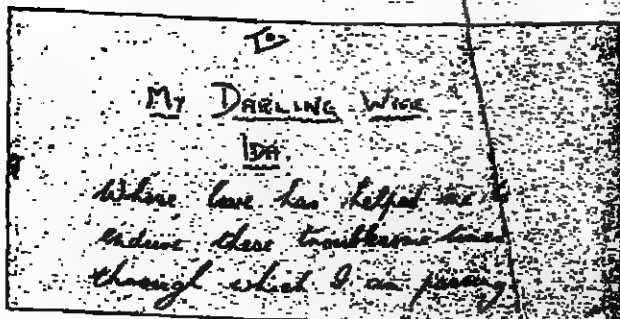 To
My Darling Wife
Ida.
Whose love has helped me to
endure these troublesome times
through which I am passing